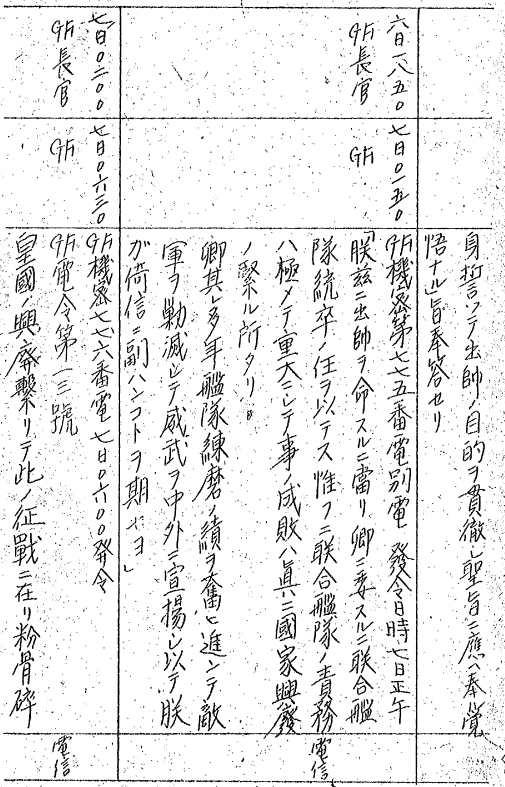 身誓ツテ出帥ノ目的ヲ貫徹シ聖旨ニ應ヘ奉覚
悟ナル旨奉答セリ
六日一八五〇
GF長官
七日〇一五〇
GF
GF機密第七七五番電別電 發令日時七日正午
「朕茲ニ出帥ヲ命スルニ當リ卿ニ委スルニ聯合艦
隊統卒ノ任ヲ以テス惟フニ联合艦隊ノ責務
ハ極メテ重大ニシテ事ノ成敗ハ真ニ國家興廢
ノ繋ル所タリ
卿其レ多年艦隊練磨ノ績ヲ奮ヒ進ンテ敵
軍ヲ勦滅シテ威武ヲ中外ニ宣揚シ以テ朕
ガ倚信ニ副ハンコトヲ期セヨ」
電信
七日〇六〇〇
GF長官
七日〇六三〇
GF
GF機密七七六番電七日〇六〇〇發令
GF電令第一三號
皇國ノ興廢繋リテ此ノ征戰ニ在リ粉骨碎
電信